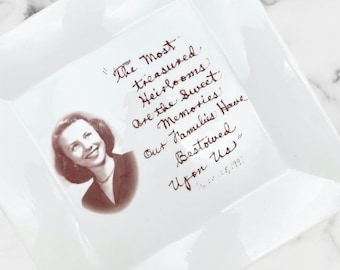 "The Most
treasured
Heirlooms
Are the Sweet
Memories
Our Families Have
Bestowed
Upon Us"